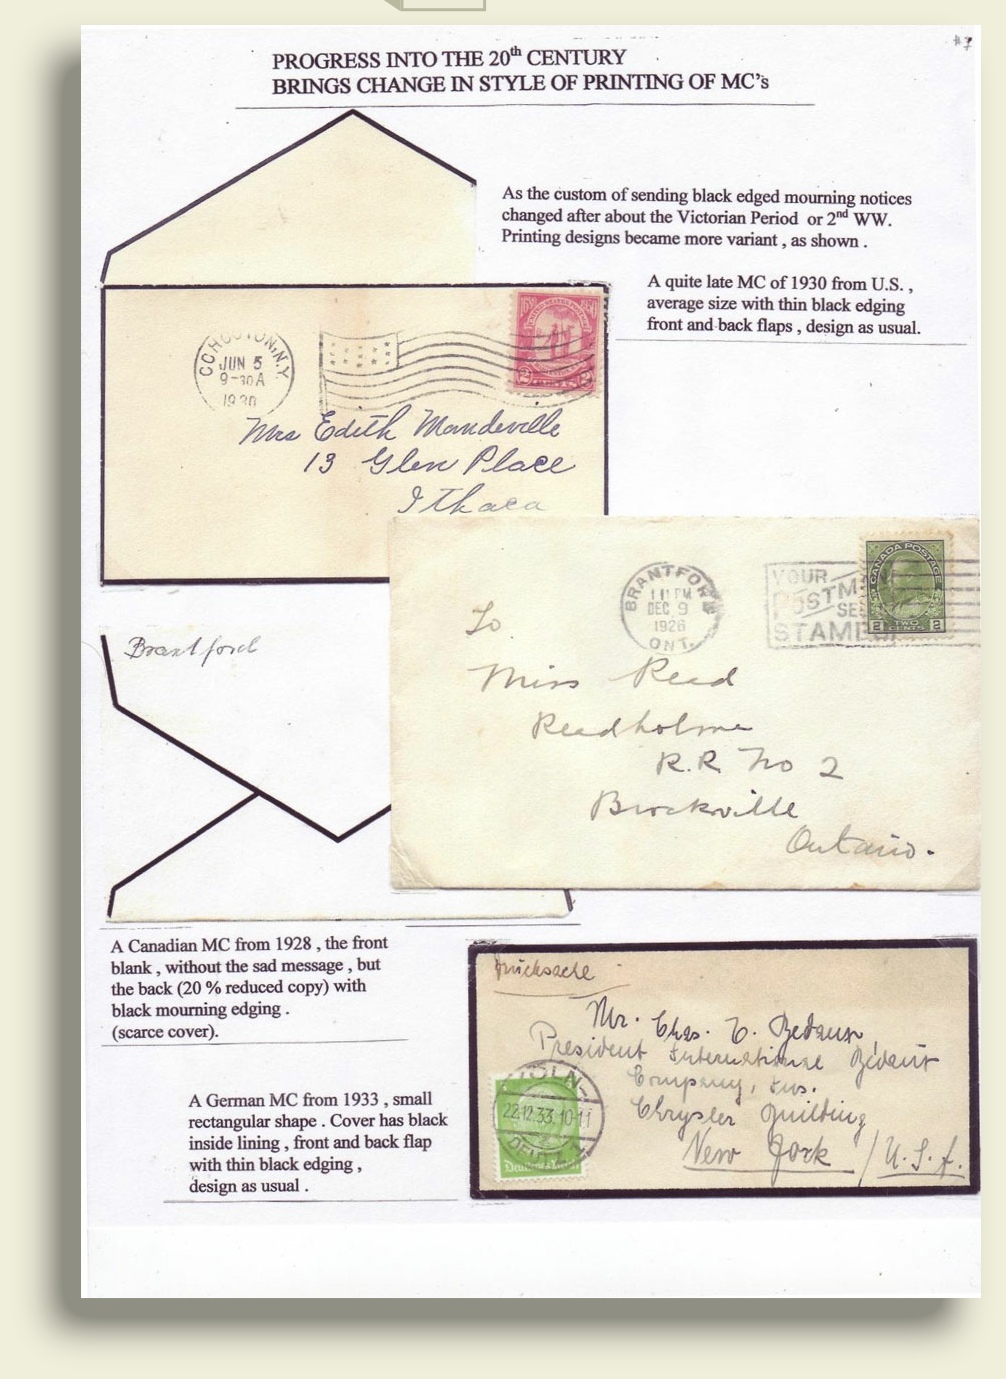 #7
PROGRESS INTO THE 20th CENTURY
BRINGS CHANGE IN STYLE OF PRINTING OF MC's
As the custom of sending black edged mourning notices
changed after about the Victorian Period or 2nd WW.
Printing designs became more variant , as shown .
A quite late MC of 1930 from U.S. ,
average size with thin black edging
front and back flaps , design as usual.
JUN 5
9-30 A
1930
Mrs Edith Mandeville
13 Glen Place
Ithaca
BRANTFORD
11 PM
DEC 9
1928
ONT.
YOUR
POSTMAN
STAMPS
CANADA POSTAGE
2 TWO CENTS 2
To
Miss Read
Readholme
R.R. No 2
Brockville
Ontario.
Brantford
A Canadian MC from 1928 , the front
blank , without the sad message , but
the back (20 % reduced copy) with
black mourning edging .
(scarce cover).
Drucksache
Mr. Chas. E. Bedaux,
President International Bedaux
Company, Inc.
Chrysler Building
New York / U.S.A.
KÖLN-
22.12.33.10-11
DEUTZ
Deutsches Reich
A German MC from 1933 , small
rectangular shape . Cover has black
inside lining , front and back flap
with thin black edging ,
design as usual .